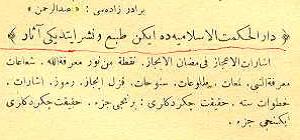 برادر زاده سی : « عبدالرحمن »
﴿ دار الحكمت الاسلاميه ده ايكن طبع و نشر ايتديكى آثار ﴾
اشارات الاعجاز فى مضان الايجاز. نقطة من نور معرفة الله. شعاعات
معرفة النبى. لمعات. طلوعات. سنوحات. قزل ايجاز. رموز. اشارات.
خطوات سته. حقيقت چكردكلرى: برنجى جزء. حقيقت چكردكلرى:
ايكنجى جزء.